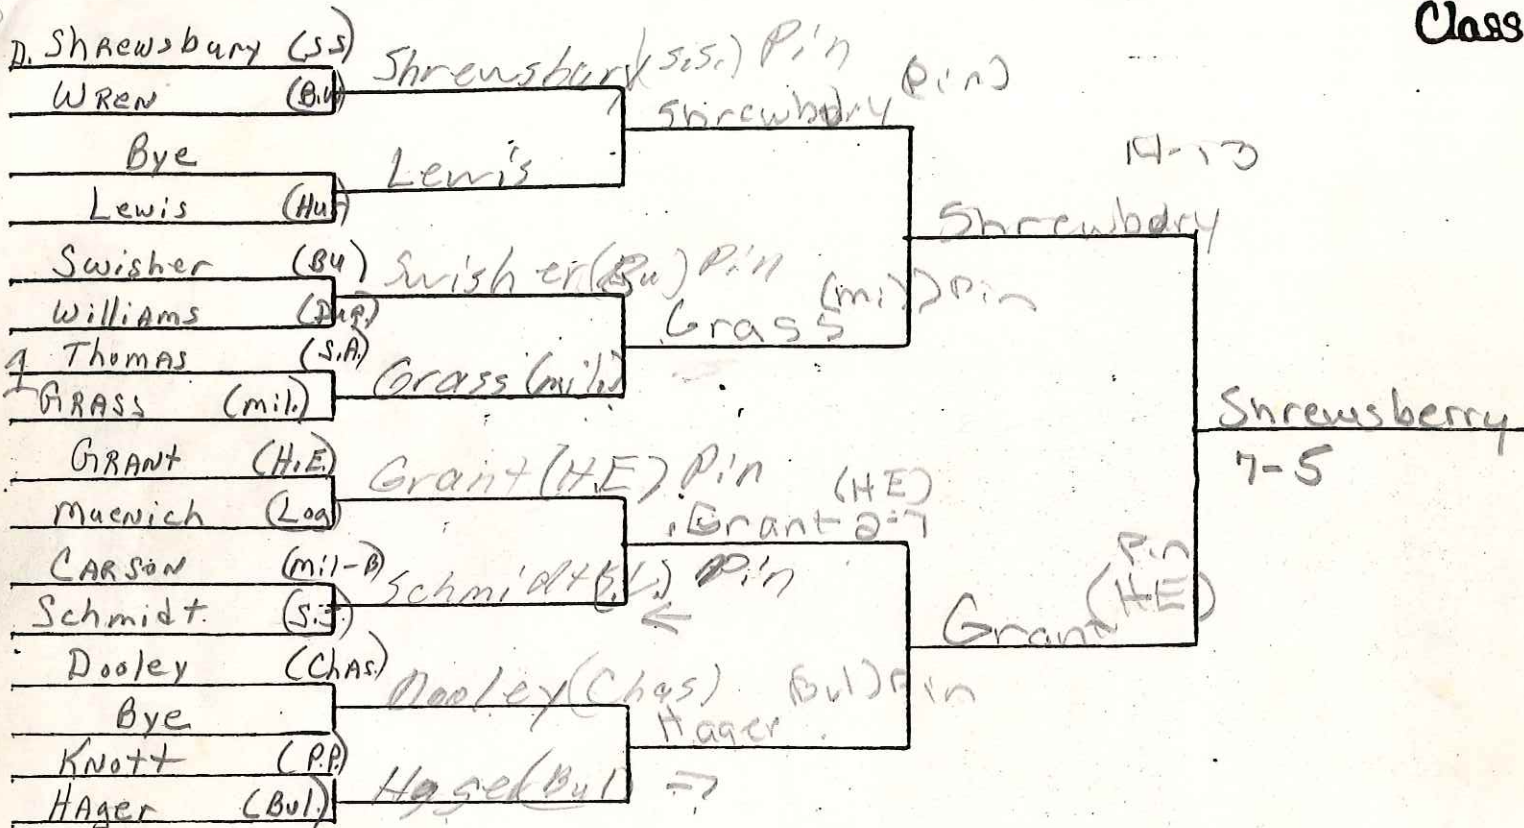 Class
D. Shrewsbury (SS)
Wren (B.W)
Bye
Lewis (Hur)
Swisher (Bu)
Williams (Dup.)
Thomas (S.A.)
1 Grass (mil.)
Grant (H.E.)
Muenich (Log)
Carson (mil-B)
Schmidt (S.J)
Dooley (Chas.)
Bye
Knott (P.P.)
Hager (Bul.)
Shrewsbury (s.s.) Pin
Lewis
Swisher (Bu) Pin
Grass (mil.)
Grant (H.E) Pin
Schmidt Pin
Dooley (Chas)
Hager (Bul)
Shrewbdry (Pin)
Grass (mil) Pin
Grant (HE)
Hager (Bul) Pin
14-13
Shrewbdry
Grant (HE) Pin
Shrewsberry
7-5